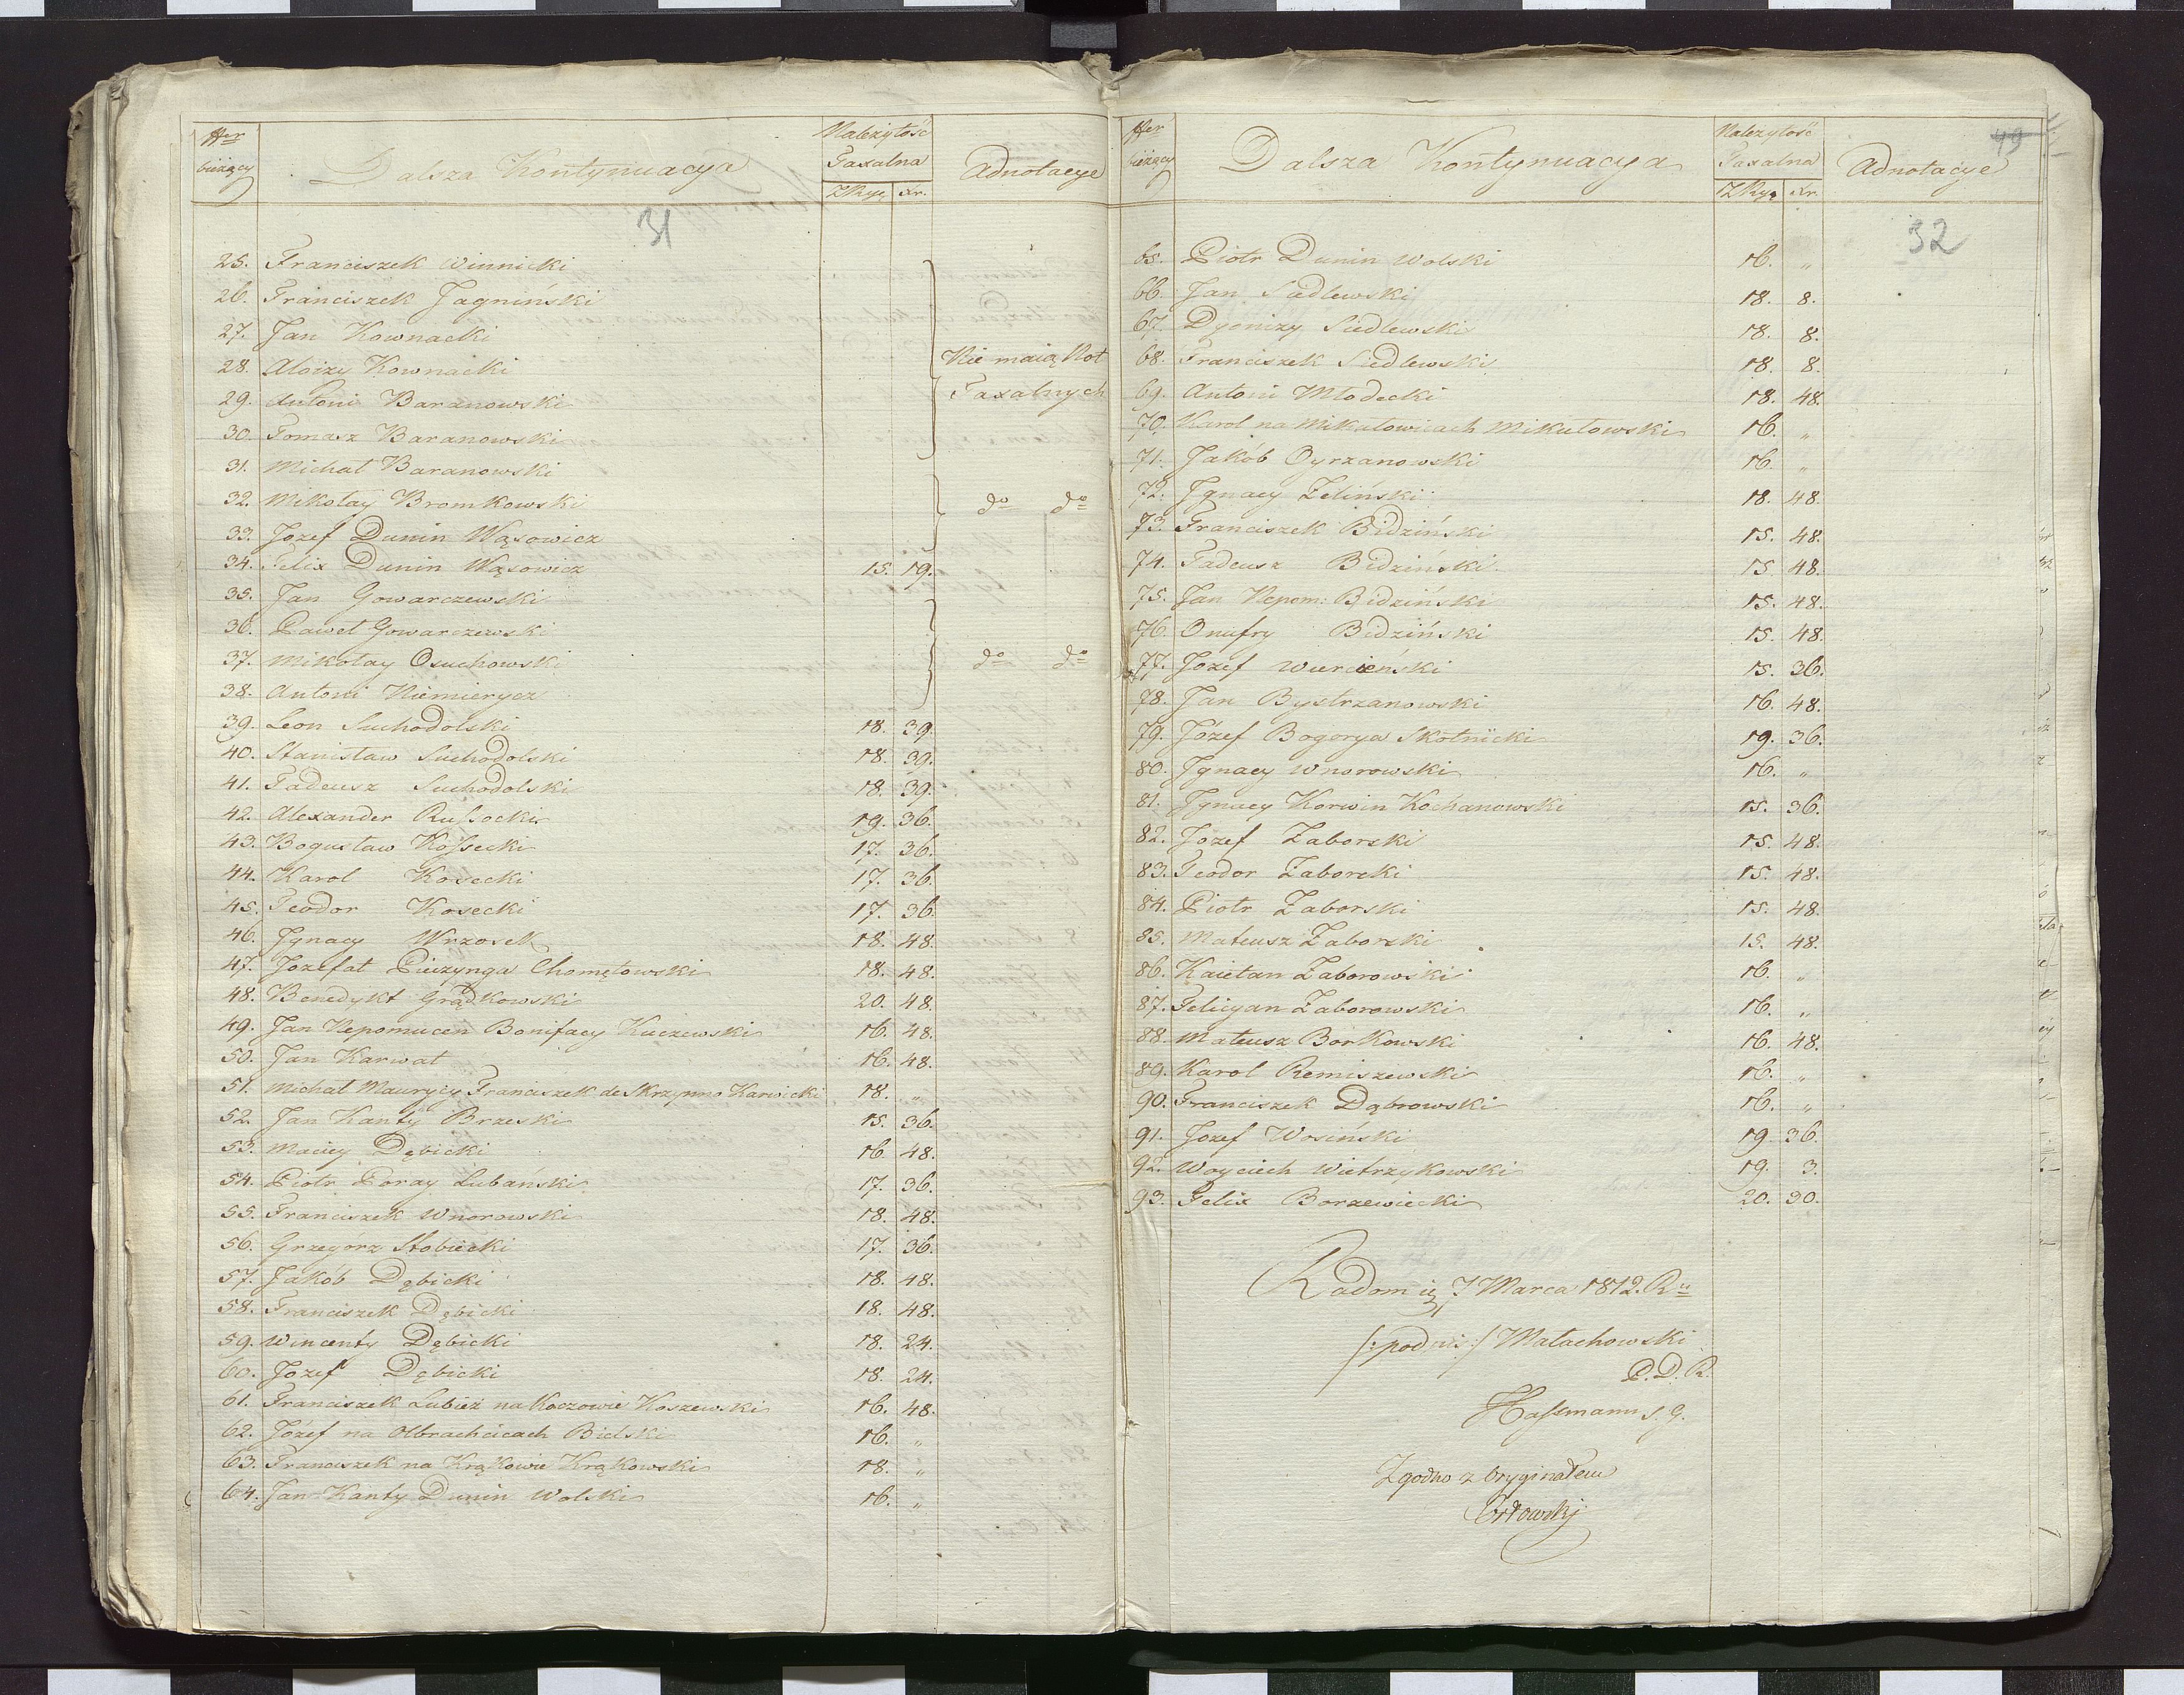 Ner bieżący
Dalsza Kontynuacya
Należytość Taxalna
ZRyę xr.
Adnotacye
31
25. Franciszek Winnicki
26. Franciszek Jagniński
27. Jan Kownacki
28. Aloizy Kownacki
Nie maią Not
29. Antoni Baranowski
Taxalnych
30. Tomasz Baranowski
31. Michał Baranowski
32. Mikołay Bromkowski do do
33. Jozef Dunin Wąsowicz
34. Felix Dunin Wąsowicz 15. 19.
35. Jan Gowarczewski
36. Paweł Gowarczewski
37. Mikołay Osuchowski do do
38. Antoni Niemierycz
39. Leon Suchodolski 18. 39.
40. Stanisław Suchodolski 18. 39.
41. Tadeusz Suchodolski 18. 39.
42. Alexander Russocki 19. 36.
43. Bogusław Kossecki 17. 36.
44. Karol Kosecki 17. 36.
45. Teodor Kosecki 17. 36.
46. Jgnacy Wrzosek 18. 48.
47. Jozefat Pieczynga Chomętowski 18. 48.
48. Benedykt Grądkowski 20. 48.
49. Jan Nepomucen Bonifacy Kuczewski 16. 48.
50. Jan Karwat 16. 48.
51. Michał Maurycy Franciszek de Skrzynno Karwicki 18. „
52. Jan Kanty Brzeski 15. 36.
53. Maciey Dębicki 16 48.
54. Piotr Poray Lubański 17. 36.
55. Franciszek Wnorowski 18. 48.
56. Grzegórz Stobiecki 17. 36.
57. Jakób Dębicki 18. 48.
58. Franciszek Dębicki 18. 48.
59. Wincenty Dębicki 18. 24.
60. Jozef Dębicki 18. 24.
61. Franciszek Lubiez na Koczowie Koszewski 16. 48.
62. Józef na Olbrachcicach Bielski 16. „
63. Franciszek na Krąkowie Krąkowski 18. „
64. Jan Kanty Dunin Wolski 16. „
Ner bieżący
Dalsza Kontynuacya
Należytość Taxalna
ZRyę xr.
Adnotacye
49
32
65. Piotr Dunin Wolski 16. „
66. Jan Siedlewski 18. 8.
67. Dyonizy Siedlewski 18. 8.
68. Franciszek Siedlewski 18. 8.
69. Antoni Młodecki 18. 48.
70. Karol na Mikułowicach Mikułowski 16. „
71. Jakób Oyrzanowski 16. „
72. Jgnacy Zeliński 18. 48.
73. Franciszek Bidziński 15. 48.
74. Tadeusz Bidziński 15. 48.
75. Jan Nepom: Bidziński 15. 48.
76. Onufry Bidziński 15. 48.
77. Jozef Wierciński 15. 36.
78. Jan Bystrzanowski 16. 48.
79. Józef Bogorya Skotnicki 19. 36.
80. Jgnacy Wnorowski 16. „
81. Jgnacy Korwin Kochanowski 15. 36.
82. Jozef Zaborski 15. 48.
83. Teodor Zaborski 15. 48.
84. Piotr Zaborski 15. 48.
85. Mateusz Zaborski 15. 48.
86. Kaietan Zaborowski 16. „
87. Felicyan Zaborowski 16. „
88. Mateusz Borkowski 16. 48.
89. Karol Remiszewski 16. „
90. Franciszek Dąbrowski 16. „
91. Jozef Wosiński 19. 36.
92. Woyciech Wietrzykowski 19. 3.
93. Felix Borzewiecki 20. 30.
Radom 7 Marca 1812. Ru
/:podpis:/ Małachowski
P. D. R.
Hassmann S. G.
Zgodno z Oryginałem
Orłowski